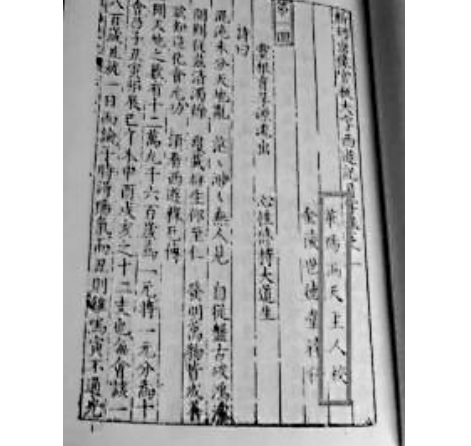 新刻出像官板大字西遊記月字卷之一
華陽洞天主人校
金陵世德堂梓行
第一回
靈根育孕源流出 心性修持大道生
詩曰
混沌未分天地亂 茫茫渺渺無人見 自從盤古破鴻濛
開闢從茲清濁辨 覆載群生仰至仁 發明萬物皆成善
欲知造化會元功 須看西遊釋厄傳
聞天地之數有十二萬九千六百歲為一元將一元分為十
會乃子丑寅卯辰巳午未申酉戌亥之十二支也每會該一
八百歲且就一日而論子時得陽氣而丑則雞鳴寅不通光